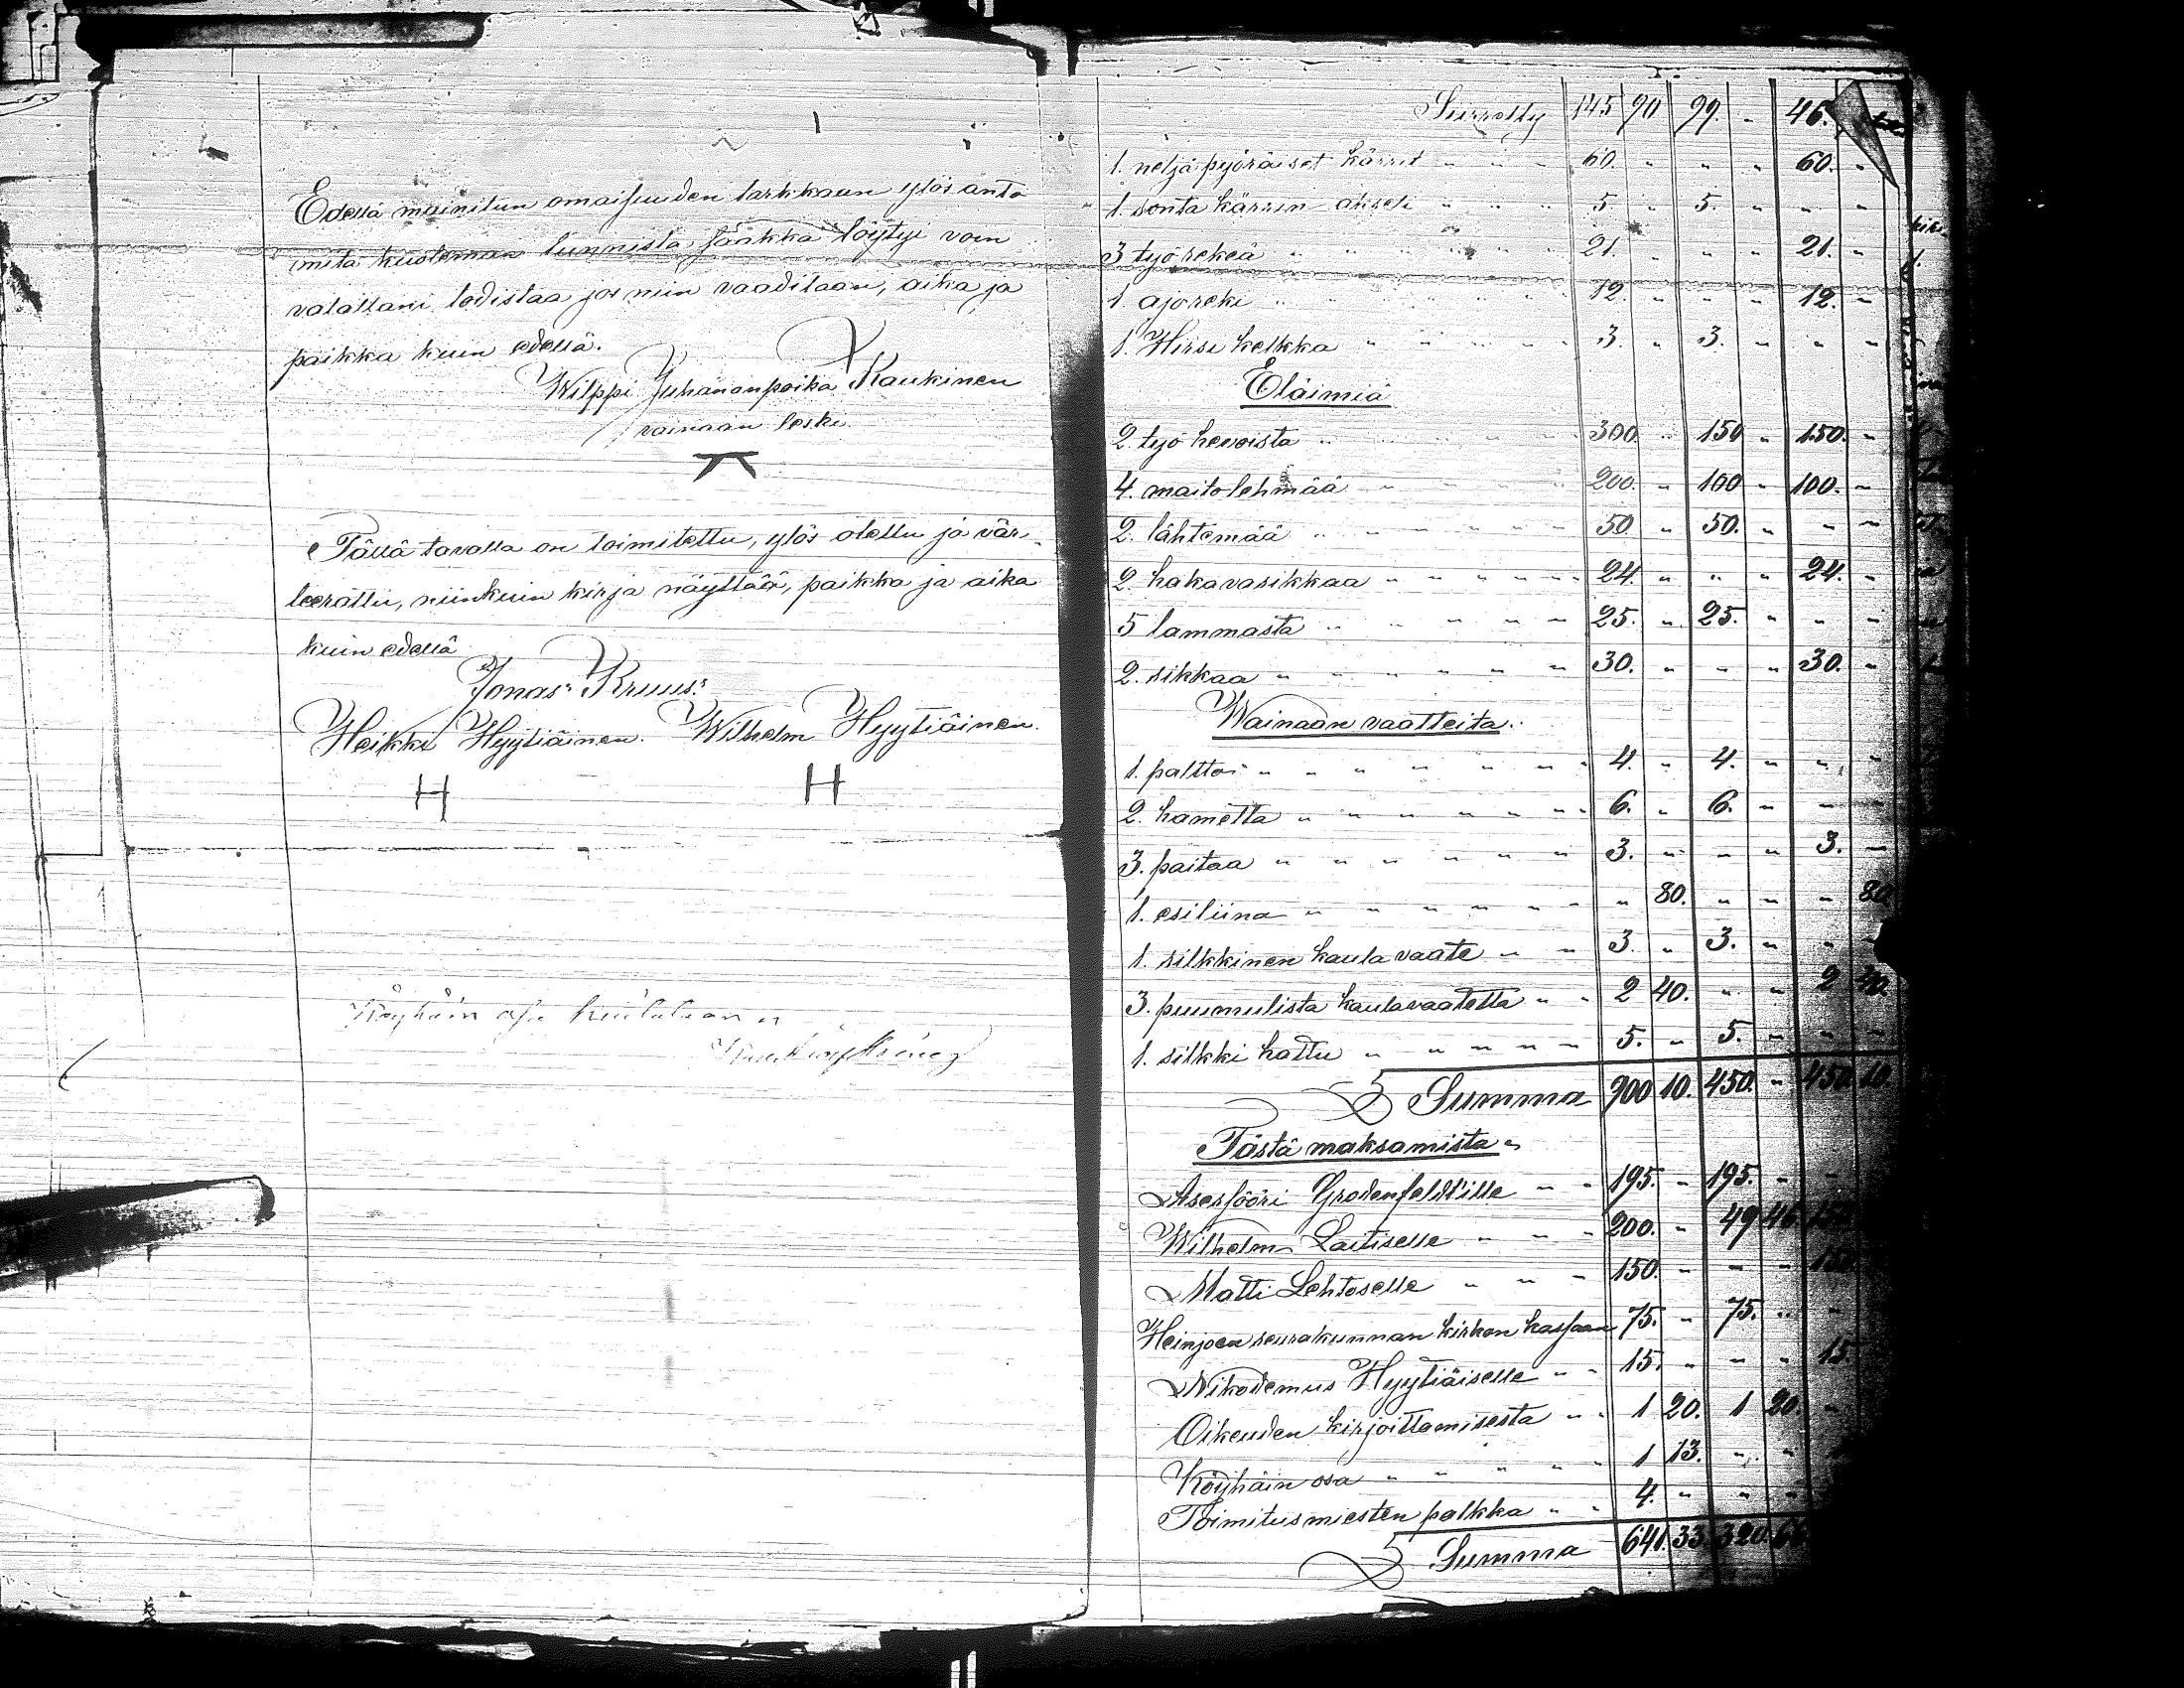 Edellä mainitun omaisuuden tarkkaan ylös anto
mitä kuoleman tunnista jäänkkä löytyi voin
valallani todistaa jos niin vaaditaan, aika ja
paikka kuin edellä.
Wilppi Juhananpoika Kaukinen
vainaan leski
Tällä tavalla on toimitettu, ylös otettu ja vär-
leerattu, niinkuin kirja näyttää, paikka ja aika
kuin edellä
Jonas Kruus
Heikki Hyytiäinen. Wilhelm Hyytiäinen.
H H
Köyhäin osa kuitataan
Siirretty 145 90 99. " 46.
1. neljä pyöräiset kärrit " " " 60. " " " 60. "
1. sonta kärrin akseli " " " 5. " 5. " " "
3 työ rekeä " " " 21. " " " 21. "
1. ajoreki " " " 12. " " " 12. "
1. Hirsi kelkka " " " 3. " 3. " " "
Eläimiä
2. työ hevoista " " " 300. " 150 " 150. "
4. maito lehmää " " " 200. " 100 " 100. "
2. lähtemää " " " 50 " 50. " " "
2. hakavasikkaa " " " 24. " " " 24. "
5 lammasta " " " 25. " 25. " " "
2. sikkaa " " " 30. " " " 30. "
Wainaan vaatteita.
1. palttoi " " " 4. " 4. " " "
2. hametta " " " 6. " 6. " " "
3. paitaa " " " 3. " " " 3. "
1. esiliina " " " " 80. " " " 80
1. silkkinen kaulavaate " " 3. " 3. " " "
3. puumulista kaulavaatetta " " 2 40. " " 2 40.
1. silkki hattu " " " 5. " 5. " " "
Summa 900 10. 450. " 450. 10
Tästä maksamista "
Asessööri Grodenfeldt'ille " " 195. " 195. " "
Wilhelm Laitiselle " " " 200. " 49 46
Matti Lehtoselle " " " 150. " " " 150
Heinjoen seurakunnan kirkon kassaan 75. " 75. " "
Nikodemus Hyytiäiselle " " 15. " " " 15.
Oikeuden kirjoittamisesta " " 1 20. 1 20. "
Köyhäin osa " " " 1 13. " "
Toimitusmiesten palkka " " 4. " " "
Summa 641. 33. 320. 66